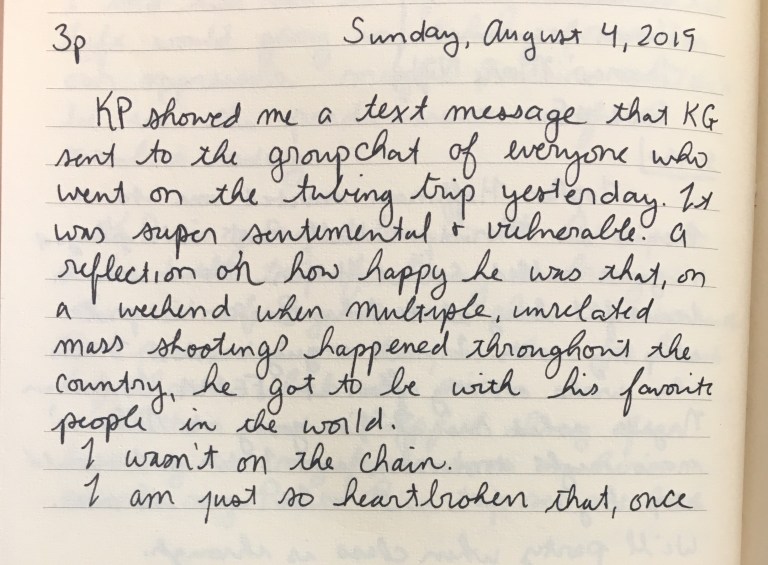 3p Sunday, August 4, 2019
KP showed me a text message that KG
sent to the groupchat of everyone who
went on the tubing trip yesterday. It
was super sentimental + vulnerable. A
reflection on how happy he was that, on
a weekend when multiple, unrelated
mass shootings happened throughout the
country, he got to be with his favorite
people in the world.
I wasn't on the chain.
I am just so heartbroken that, once